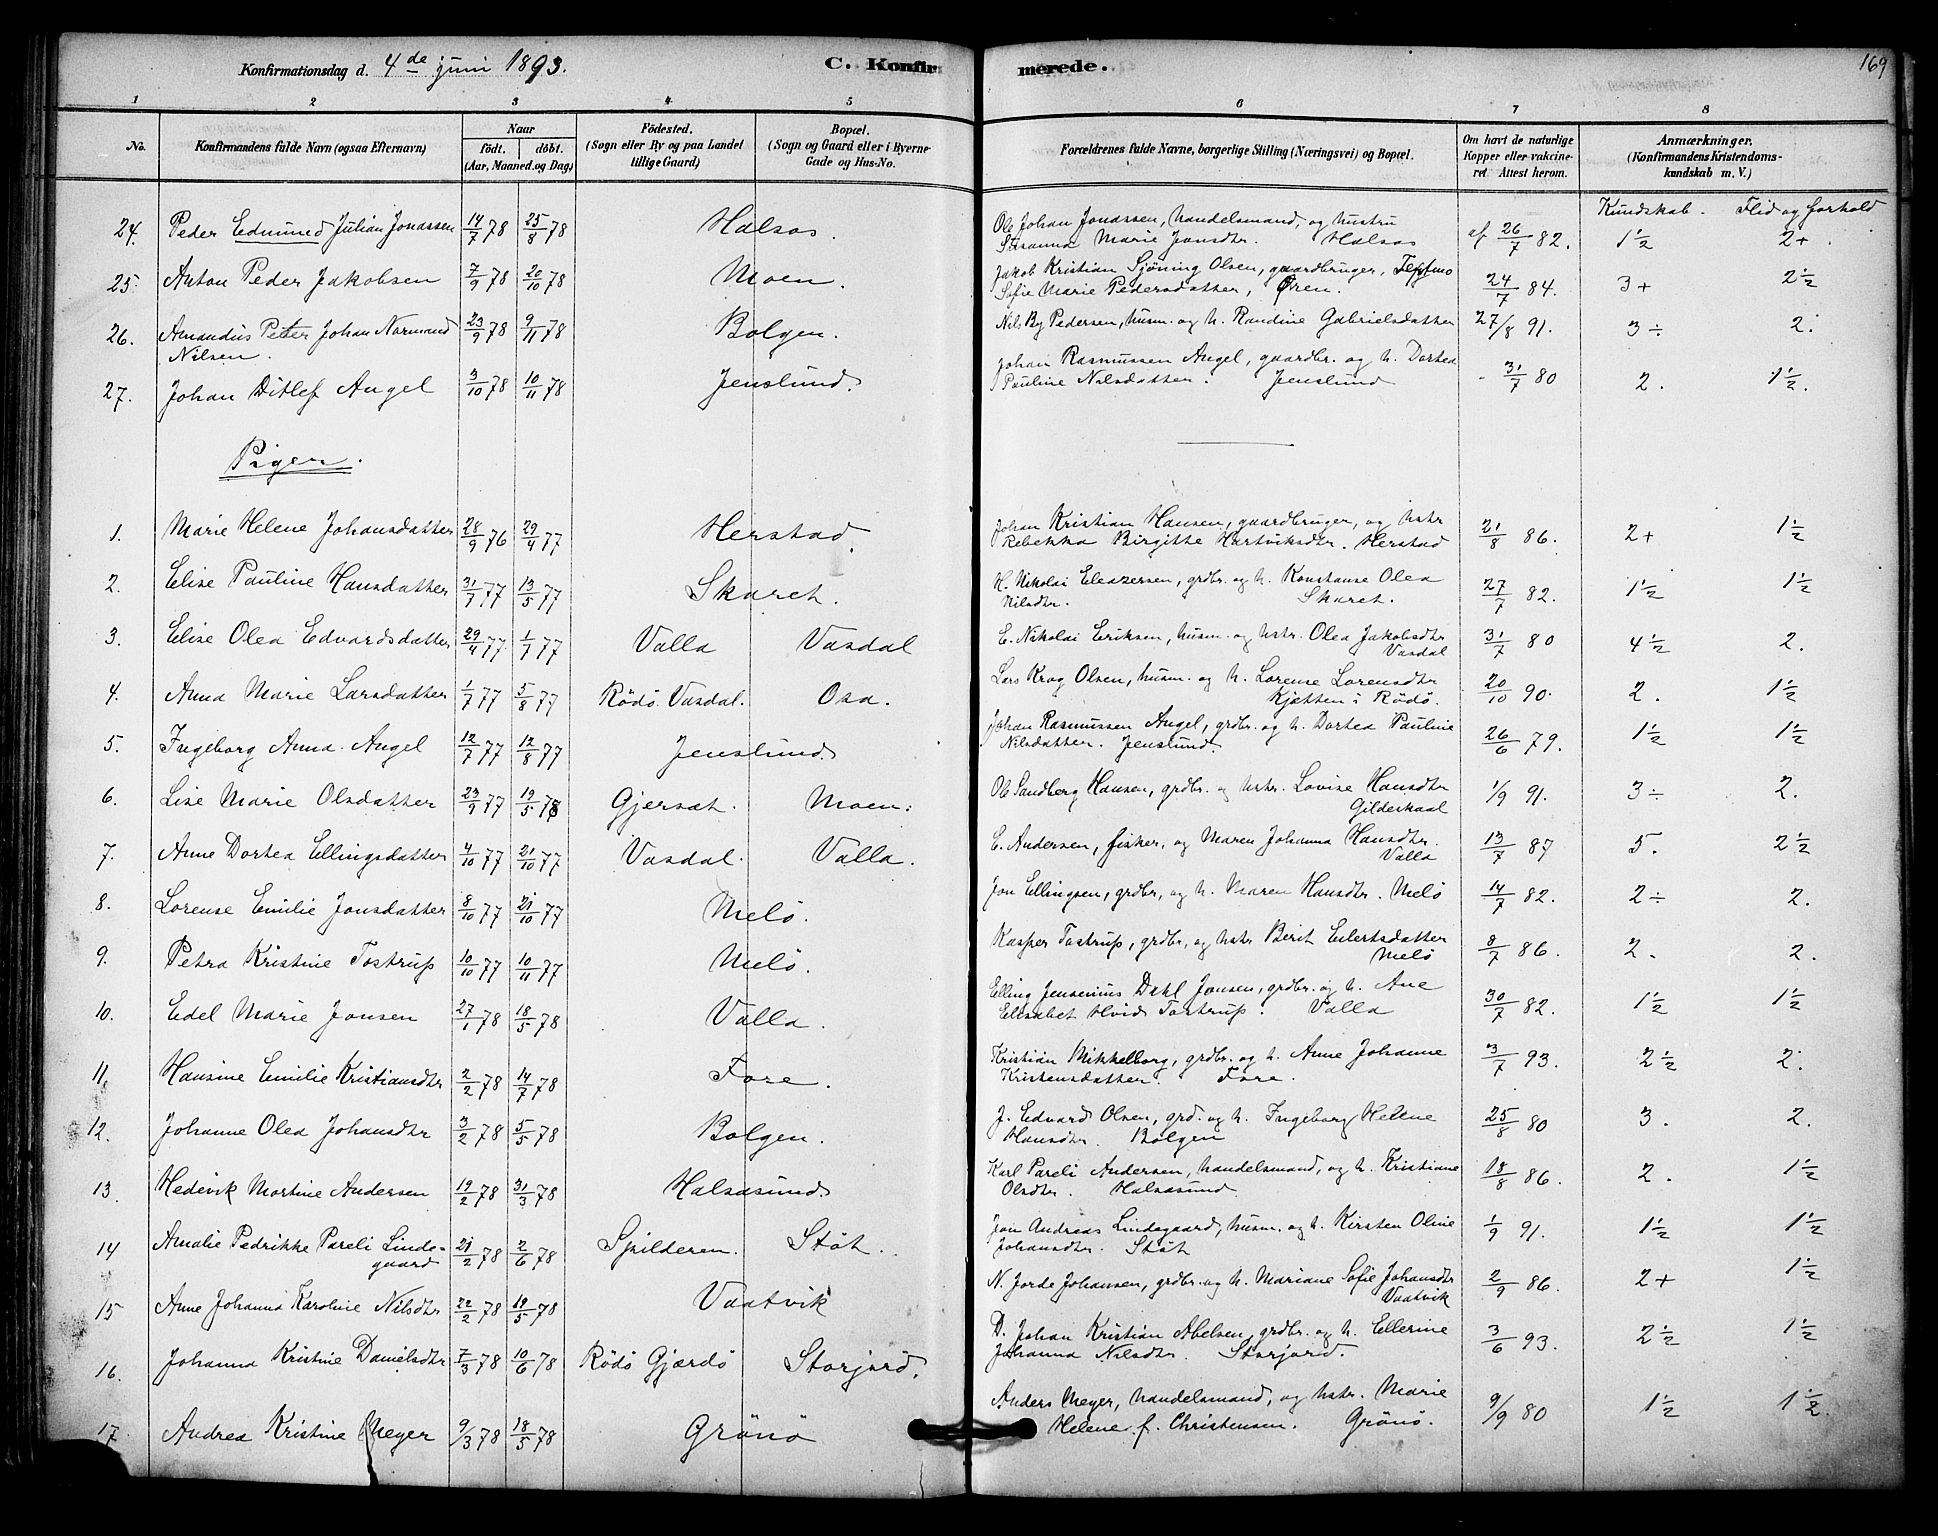 Konfirmationsdag d. 4de juni 1893. C. Konfirmerede. 169
1 2 3 4 5 6 7 8
No. Konfirmandens fulde Navn (ogsaa Efternavn) Naar født, døbt. (Aar, Maaned og Dag) Fødested. (Sogn eller By og paa Landet tillige Gaard) Bopæl. (Sogn og Gaard eller i Byerne Gade og Hus-No. Forældrenes fulde Navne, borgerlige Stilling (Næringsvei) og Bopæl. Om havt de naturlige Kopper eller vakcineret Attest herom. Anmærkninger. (Konfirmandens Kristendomskundskab m. V.)
Kundskab. Flid og forhold
24. Peder Edmund Julian Jonassen 14/7 78 25/8 78 Halsos. Ole Johan Jonassen, handelsmand, og hustru af 26/7 82. 1½ 2+
Susanna Marie Jonsdtr. Halsos
25. Anton Peder Jakobsen 7/9 78 20/10 78 Moen. Jakob Kristian Sjöning Olsen, gaardbruger, 24/7 84. 3+ 2½
Sofie Marie Pedersdatter, Ören.
26. Amandus Peter Johan Normand 23/9 78 9/11 78 Bolgen. Nils By Pedersen, husm. og h. Randine Gabrielsdatter 27/8 91. 3÷ 2.
Nilsen.
27. Johan Ditlef Angel 3/10 78 10/11 78 Jenslund. Johan Rasmussen Angel, gaardbr. og h. Dortea - 31/7 80 2. 1½.
Pauline Nilsdatter. Jenslund
Piger.
1. Marie Helene Johansdatter 28/9 76 29/4 77 Herstad. Johan Kristian Hansen, gaardbruger, og hstr 21/8 86. 2+ 1½
Rebekka Birgitte Hartviksdtr. Herstad
2. Elise Pauline Hansdatter 31/1 77 13/5 77 Skaret. H. Nikolai Eleazersen, grdbr. og h. Konstanse Olea 27/7 82. 1½ 1½
Nilsdtr. Skaret.
3. Elise Olea Edvardsdatter 29/4 77 1/7 77 Valla Vasdal E. Nikolai Eriksen, husm. og hstr. Olea Jakobsdtr 31/7 80 4½ 2.
Vasdal
4. Anna Marie Larsdatter 1/7 77 5/8 77 Rödö. Vasdal. Osa. Lars Krog Olsen, husm. og h. Lorense Lorensdtr 20/10 90. 2. 1½
Kjætten i Rödö.
5. Ingeborg Anna Angel 12/7 77 12/8 77 Jenslund. Johan Rasmussen Angel, grdbr. og h. Dortea Pauline 26/6 79. 1½ 1½
Nilsdatter. Jenslund.
6. Lise Marie Olsdatter 23/9 77 19/5 78 Gjersæt. Moen. Ole Sandberg Hansen, grdbr. og hstr. Lovise Hansdtr 1/9 91. 3÷ 2.
Gilderkaal
7. Anne Dortea Ellingsdatter 4/10 77 21/10 77 Vasdal. Valla. E. Andersen, fisker, og Maren Johanna Hansdtr. 13/7 87 5. 2½
Valla
8. Lorense Emilie Jonsdatter 8/10 77 21/10 77 Melö. Jon Ellingsen, grdbr, og h. Maren Hansdtr. Melö 14/7 82. 2÷ 2.
9. Petra Kristine Tostrup 10/10 77 10/11 77 Melö. Kasper Tostrup, grdbr, og hstr Berit Eilertsdatter 8/7 86. 2. 2.
Melö
10. Edel Marie Jonsen 27/1 78 18/5 78 Valla. Elling Jensenius Dahl Jonsen, grdbr. og h. Ane 30/7 82. 1½ 1½
Elisabet Hvid Tostrup. Valla
11. Hansine Emilie Kristiansdtr 2/2 78 14/7 78 Fore. Kristian Mikkelborg, grdbr. og h. Anne Johanne 3/7 93. 2½ 2.
Kristensdatter. Fore.
12. Johanne Olea Johansdtr 3/2 78 5/5 78 Bolgen. J. Edvard Olsen, grd. og h. Ingeborg Helene 25/8 80 3. 2.
Hansdtr. Bolgen
13. Hedevik Martine Andersen 19/2 78 31/3 78 Halsasund. Karl Pareli Andersen, handelsmand, og h. Kristiane 18/8 86. 2. 1½
Olsdtr. Halsasund
14 Amalie Pedrikke Pareli Lindegaard 21/2 78 2/6 78 Spilderen. Stöt. Jon Andreas Lindegaard, husm. og h. Kirsten Oline 1/9 91. 1½ 1½
Johansdtr. Stöt
15 Anne Johanna Karoline Nilsdtr 22/2 78 19/5 78 Vaatvik N. Jorde Johansen, grdbr. og h. Mariane Sofie Johansdtr 2/9 86. 2+ 1½
Vaatvik
16. Johanna Kristine Danielsdtr 7/3 78 10/6 78 Rödö Gjærdö Storjord. D. Johan Kristian Abelsen, grdbr. og h. Ellerine 3/6 93. 2½ 1½
Johanna Nilsdtr. Storjord.
17. Andrea Kristine Meyer 9/3 78 18/5 78 Grönö Anders Meyer, handelsmand, og hstr. Marie 9/9 80 1½ 1½.
Helene f. Christensen. Grönö.